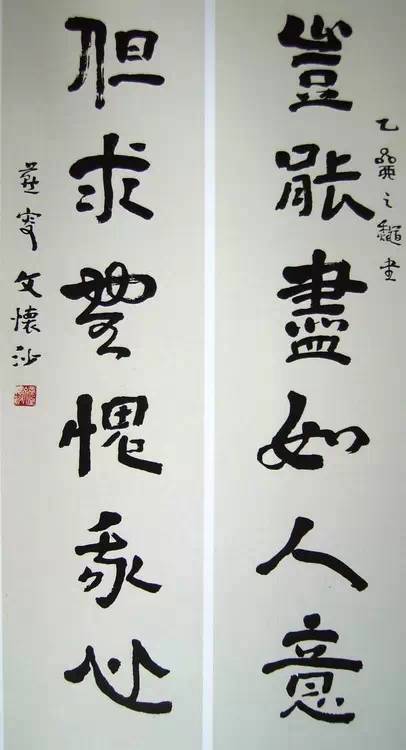 乙之龝書
豈能盡如人意
但求無愧我心
燕叟文懷沙